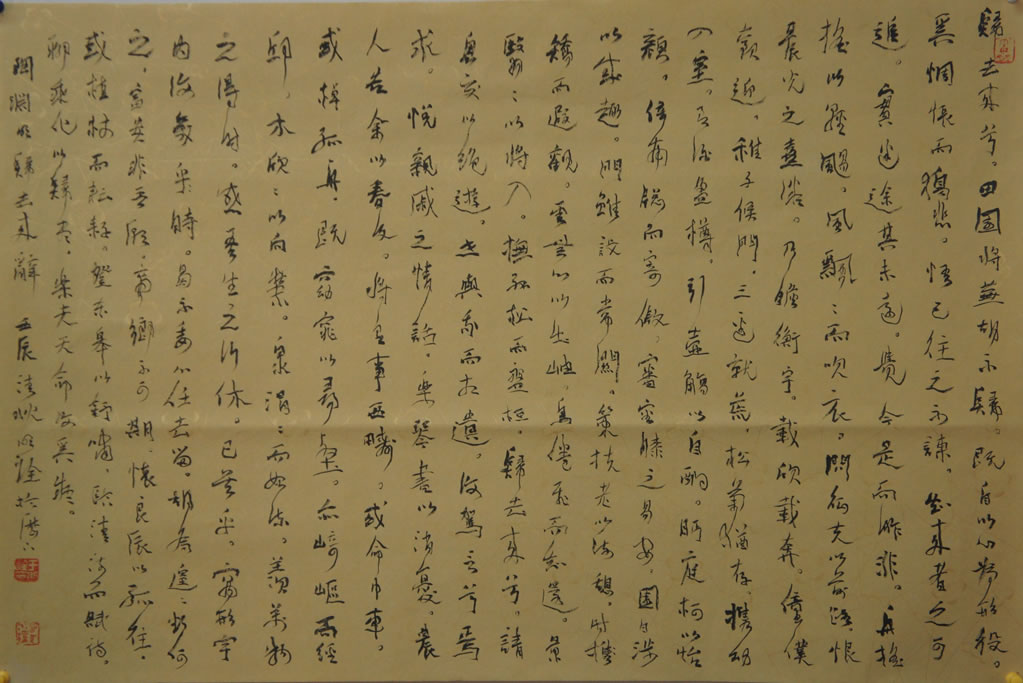 歸去來兮。田園將蕪胡不歸。既自以心為形役。
奚惆悵而獨悲。悟已往之不諫。知來者之可
追。實迷途其未遠。覺今是而昨非。舟搖
搖以輕颺。風飄〻而吹衣。問征夫以前路。恨
晨光之熹微。乃瞻衡宇。載欣載奔。僮僕
歡迎。稚子候門。三逕就荒。松菊猶存。攜幼
入室。有酒盈樽。引壺觴以自酌。眄庭柯以怡
顏。倚南窗而寄傲。審容膝之易安。園日涉
以成趣。門雖設而常關。策扶老以流憩。時
矯而遐觀。雲無心以出岫。鳥倦飛而知還。景
翳〻以將入。撫孤松而盤桓。歸去來兮。請
息交以絕遊。世與我而相遺。復駕言兮焉
求。悅親戚之情話。樂琴書以消憂。農
人告余以春及。將有事西疇。或命巾車。
或棹孤舟。既窈窕以尋壑。亦崎嶇而經
邱。木欣〻以向榮。泉涓〻而始流。羨萬物
之得時。感吾生之行休。已矣乎。寓形宇
內復幾乎時。曷不委心任去留。胡為遑〻欲何
之。富貴非吾願。帝鄉不可期。懷良辰以孤往。
或植杖而耘耔。登東皋以舒嘯。臨清流而賦詩。
聊乘化以歸盡。樂夫天命復奚疑。
陶淵明歸去來辭 壬辰清秋